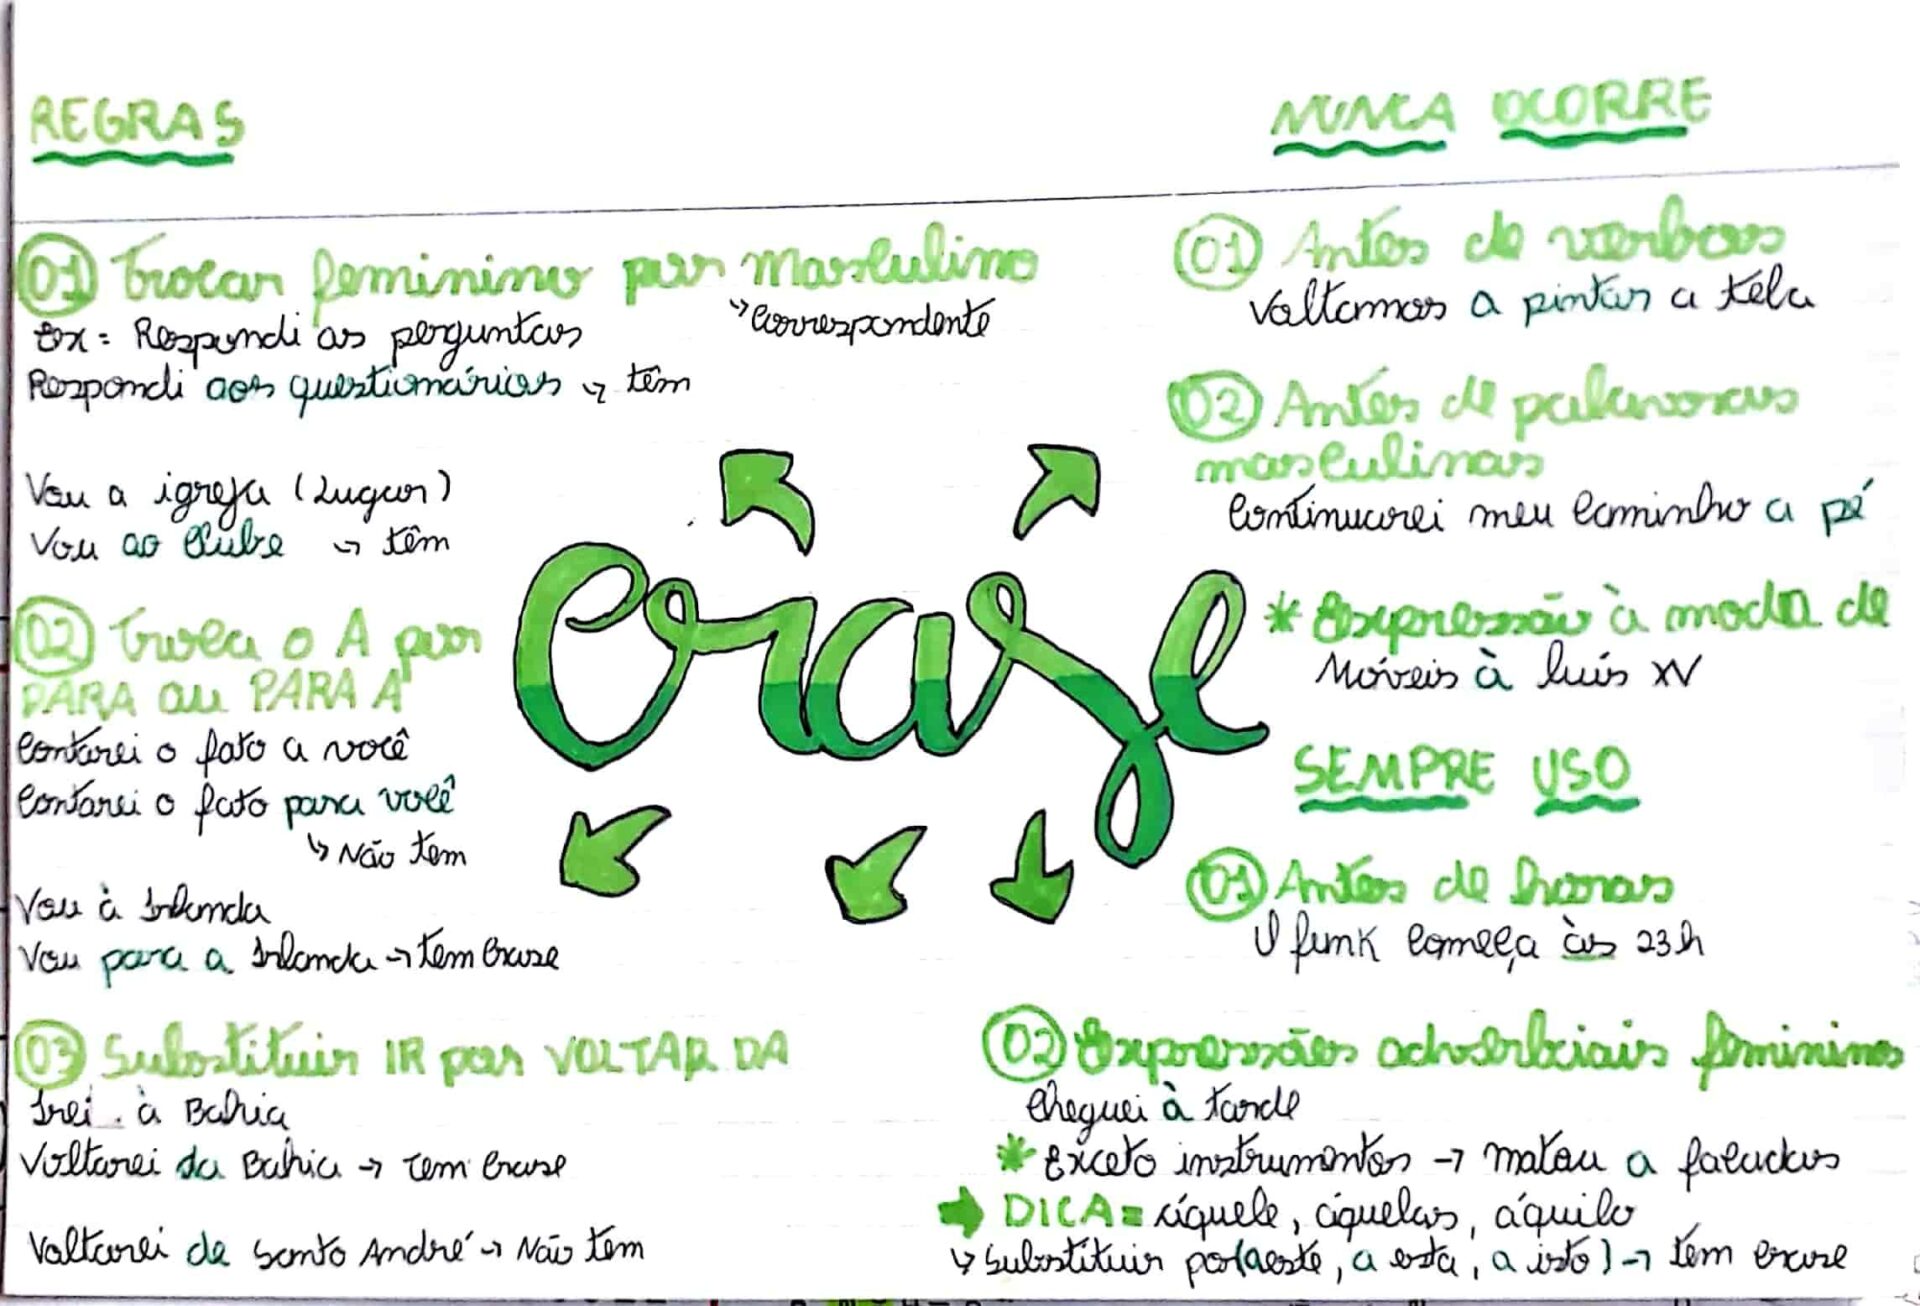 REGRAS
01 Trocar feminino por masculino
↳ correspondente
Ex = Respondi as perguntas
Respondi aos questionários ↳ têm
Vou a igreja (Lugar)
Vou ao Clube ↳ têm
02 Troca o A por
PARA ou PARA A
Contarei o fato a você
Contarei o fato para você
↳ Não tem
Vou à Irlanda
Vou para a Irlanda → tem crase
03 Substituir IR por VOLTAR DA
Irei à Bahia
Voltarei da Bahia → tem crase
Voltarei de Santo André → Não tem
crase
NUNCA OCORRE
01 Antes de verbos
Voltamos a pintar a tela
02 Antes de palavras
masculinas
Continuarei meu caminho a pé
* Expressão à moda de
Móveis à Luís XV
SEMPRE USO
01 Antes de horas
O funk começa às 23h
02 Expressões adverbiais femininas
Cheguei à tarde
* Exceto instrumentos → matou a facadas
→ DICA = áquele, áquelas, áquilo
↳ Substituir por (a este, a esta, a isto) → tem crase